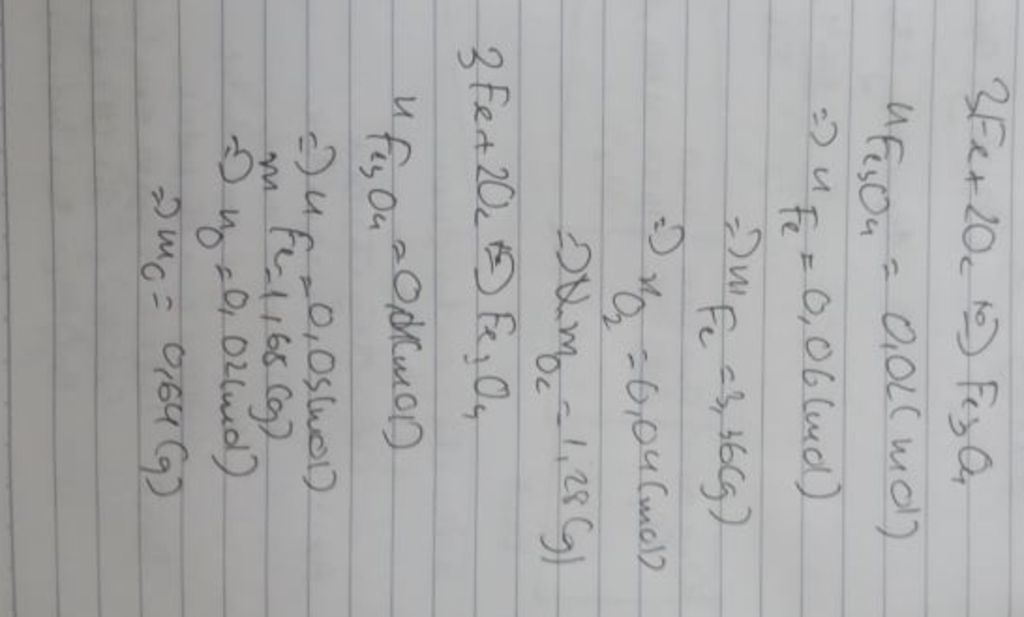 3Fe + 2O2 (t°)→ Fe3O4
nFe3O4 = 0,02 (mol)
=> nFe = 0,06 (mol)
=> mFe = 3,36 (g)
=> nO2 = 0,04 (mol)
=> mO2 = 1,28 (g)
3Fe + 2O2 (t°)→ Fe3O4
nFe3O4 = (mol)
=> nFe = 0,03 (mol)
mFe = 1,68 (g)
=> nO = 0,02 (mol)
=> mO = 0,64 (g)